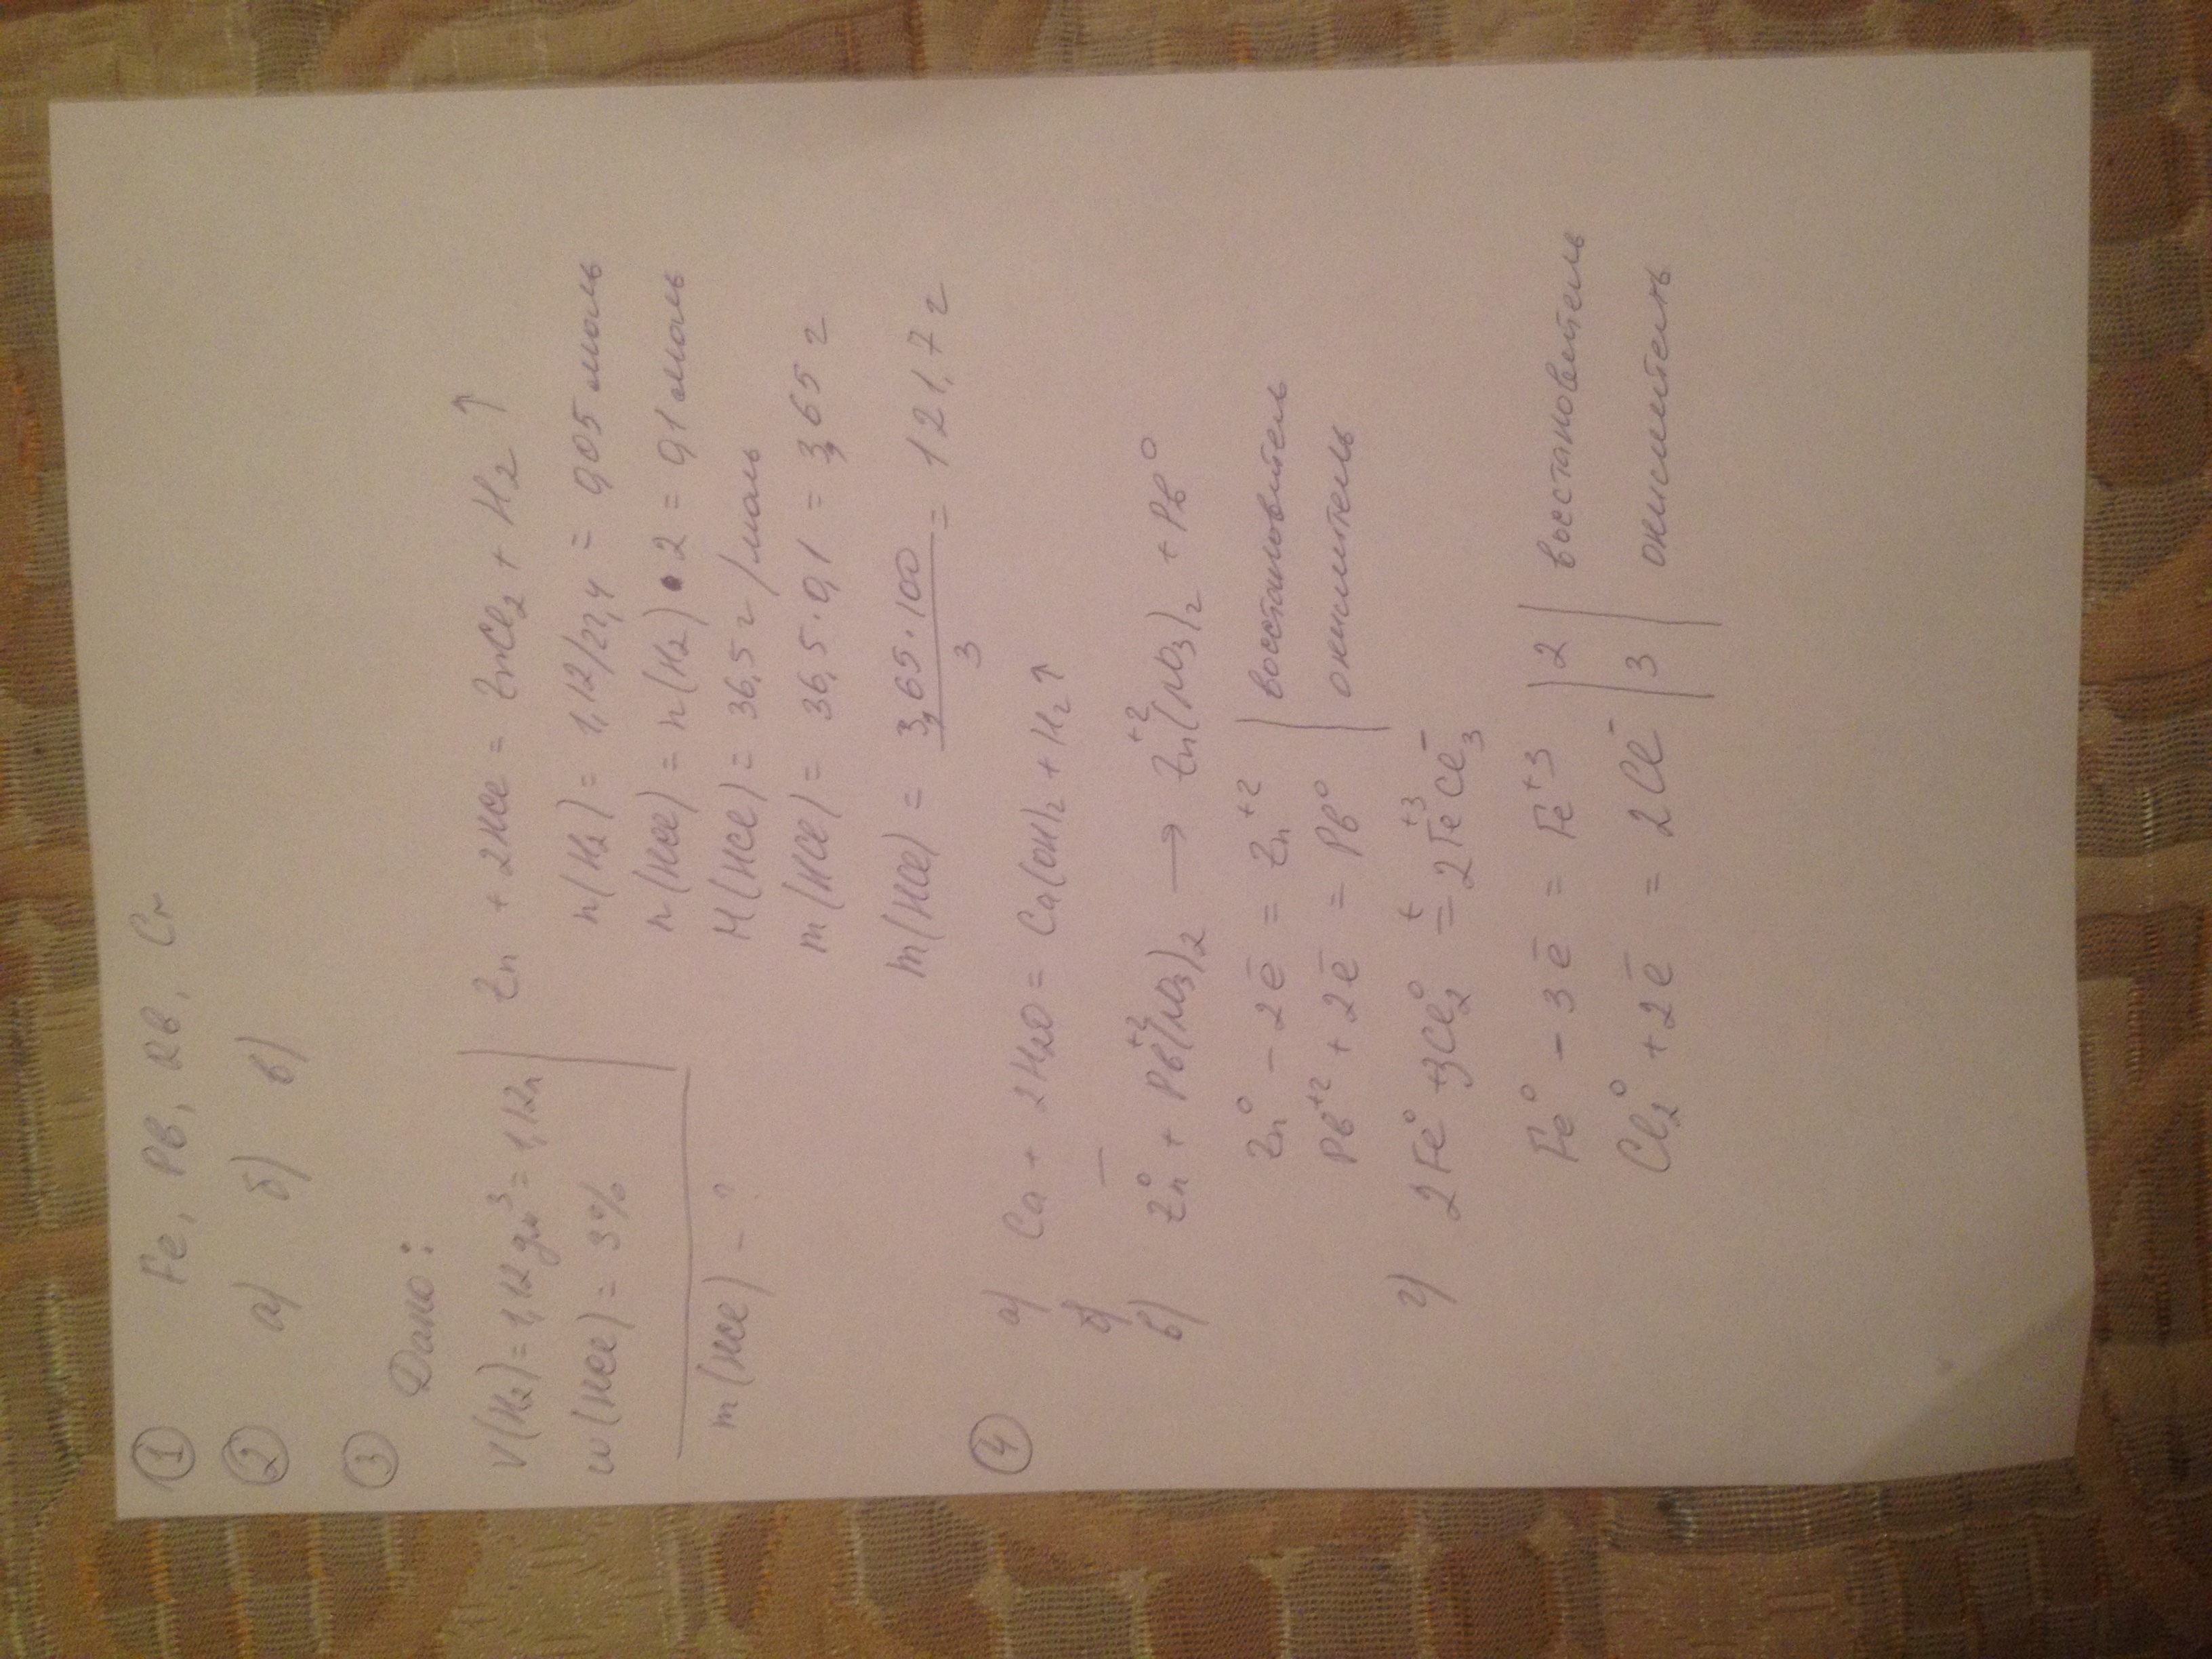 ① Fe, Pb, Rb, Cr
② а) б) в)
③ Дано:
V(H₂) = 1,12 дм³ = 1,12л
w(HCl) = 3%
m(HCl) - ?
Zn + 2HCl = ZnCl₂ + H₂ ↑
n(H₂) = 1,12/22,4 = 0,05 моль
n(HCl) = n(H₂) • 2 = 0,1 моль
M(HCl) = 36,5 г/моль
m(HCl) = 36,5 · 0,1 = 3,65 г
m(HCl) = 3,65 · 100 / 3 = 121,7 г
④ а) Ca + 2H₂O = Ca(OH)₂ + H₂ ↑
б) —
в) Zn⁰ + Pb⁺²(NO₃)₂ → Zn⁺²(NO₃)₂ + Pb⁰
Zn⁰ - 2e̅ = Zn⁺² | восстановитель
Pb⁺² + 2e̅ = Pb⁰ | окислитель
г) 2Fe⁰ + 3Cl₂⁰ =ᵗ 2Fe⁺³Cl₃⁻
Fe⁰ - 3e̅ = Fe⁺³ | 2 | восстановитель
Cl₂⁰ + 2e̅ = 2Cl⁻ | 3 | окислитель